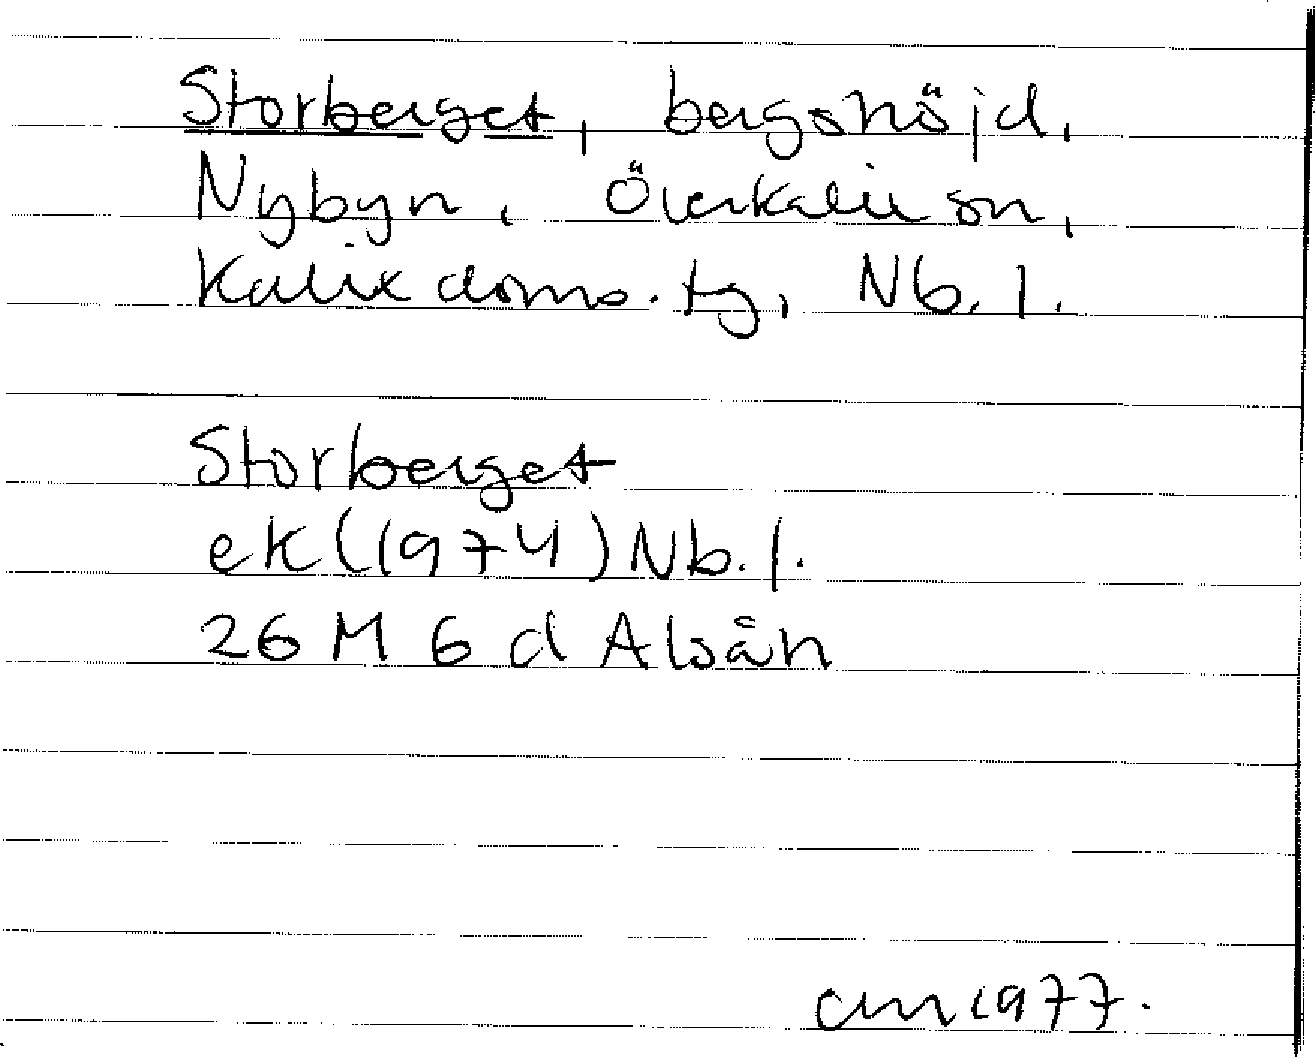 Storberget, bergshöjd,
Nybyn, Överkalix sn,
Kalix doms. tg, Nb. l.
Storberget
ek (1974) Nb. l.
26 M 6 d Alsån
1977.